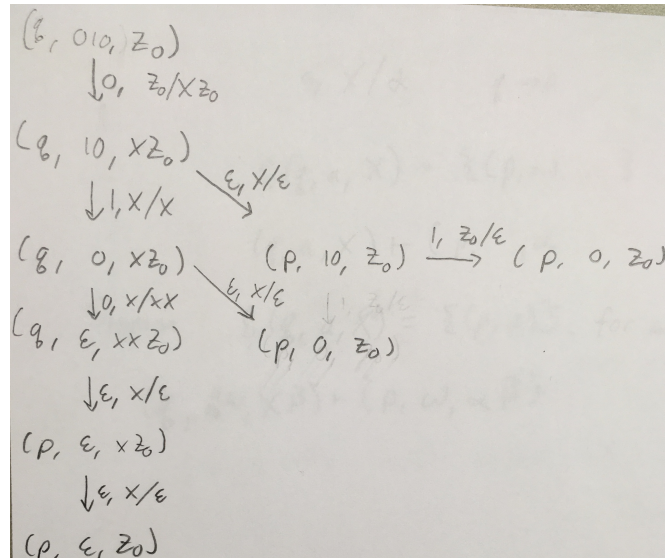 (q, 010, Z₀)
↓0, Z₀/XZ₀
(q, 10, XZ₀)
ε, X/ε
↓1, X/X
(q, 0, XZ₀)
(p, 10, Z₀) 1, Z₀/ε → (p, 0, Z₀)
ε, X/ε
↓0, X/XX
(q, ε, XXZ₀)
(p, 0, Z₀)
↓ε, X/ε
(p, ε, XZ₀)
↓ε, X/ε
(p, ε, Z₀)